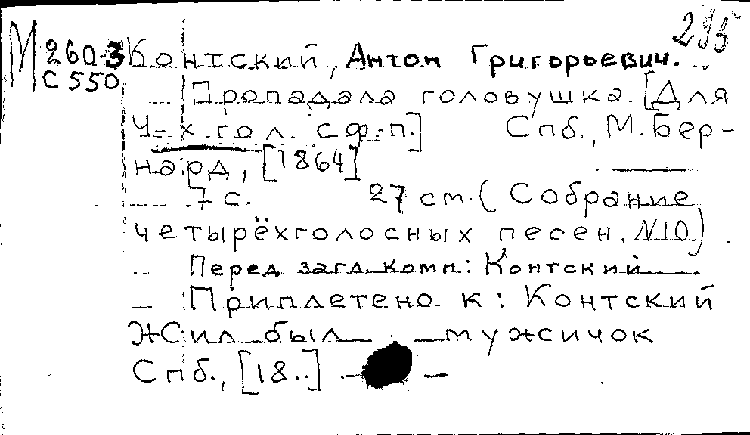 295
М 260-3 Контский, Антон Григорьевич.
С 550
Пропадала головушка. [Для
4-х гол. с ф.-п.] Спб., М. Бер-
нард, [1864]
7 с. 27 см. (Собрание
четырёхголосных песен. №10)
Перед загл. комп.: Контский
Приплетено к: Контский
Жил был мужичок
Спб., [18..]